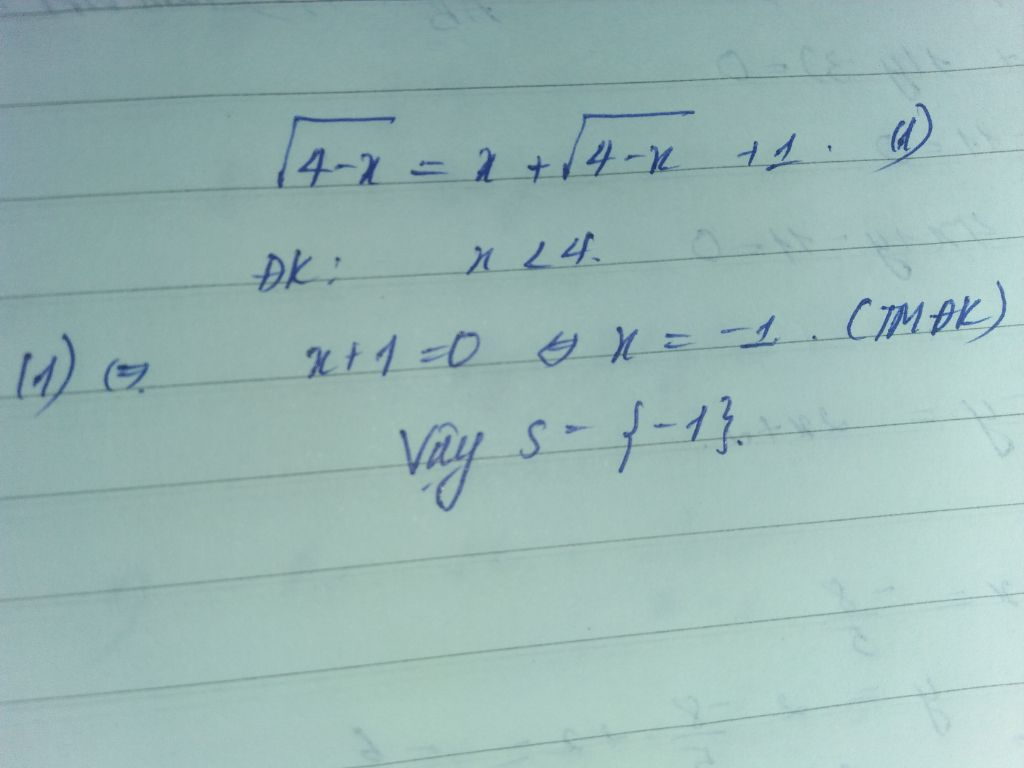 √4-x = x + √4-x +1. (1)
ĐK: x < 4.
(1) ⇔ x+1 =0 ⇔ x = -1. (TMĐK)
Vậy S = {-1}.